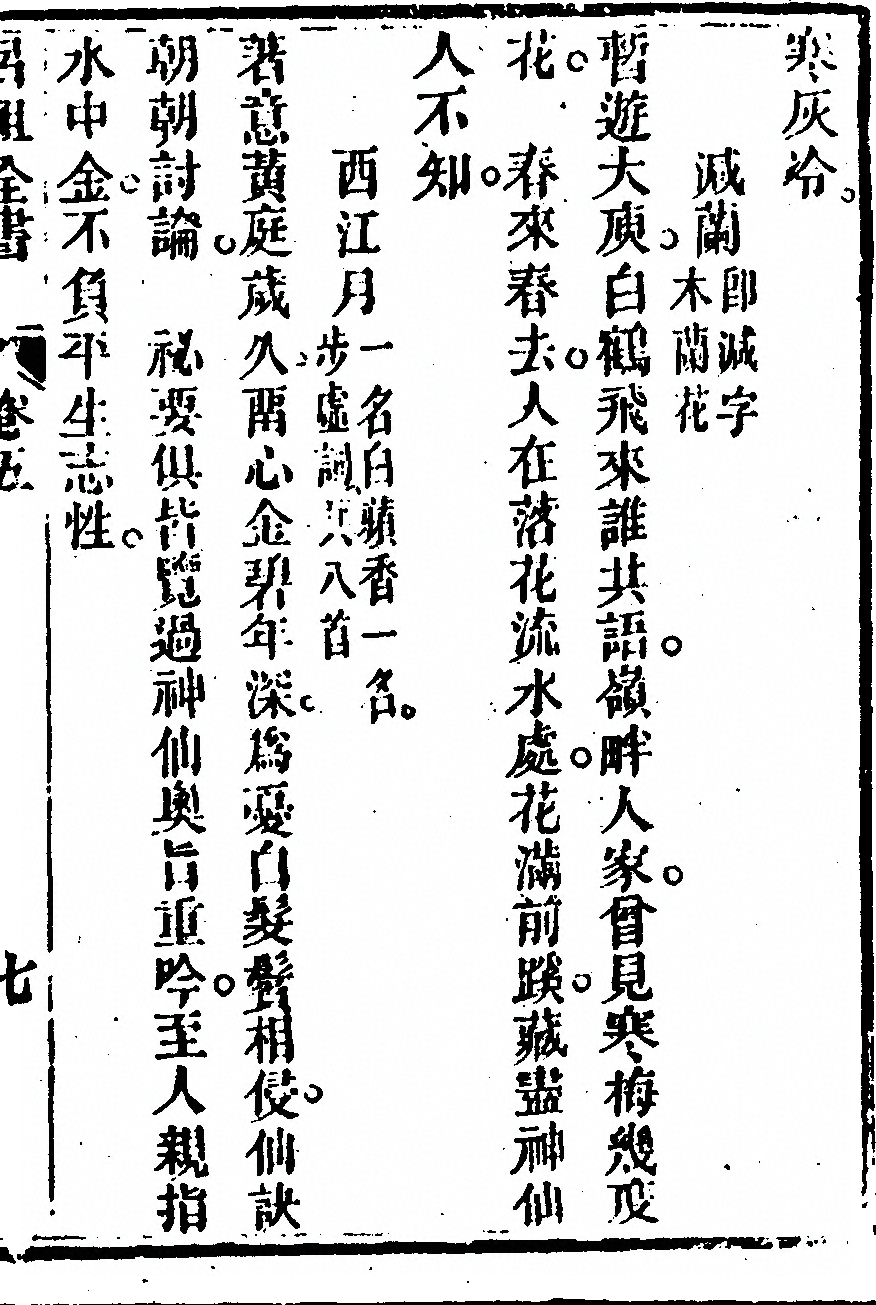 寒灰冷。
減蘭 卽減字木蘭花
暫遊大庾。白鶴飛來誰共語。嶺畔人家。曾見寒梅幾度
花。 春來春去。人在落花流水處。花滿前蹊。藏盡神仙
人不知。
西江月 一名白蘋香一名。步虛詞共八首
著意黃庭歲久。留心金碧年深。爲憂白髮鬢相侵。仙訣
朝朝討論。 祕要俱皆覽過神仙奧旨重吟。至人親指
水中金。不負平生志性。
呂祖全書 卷五 七